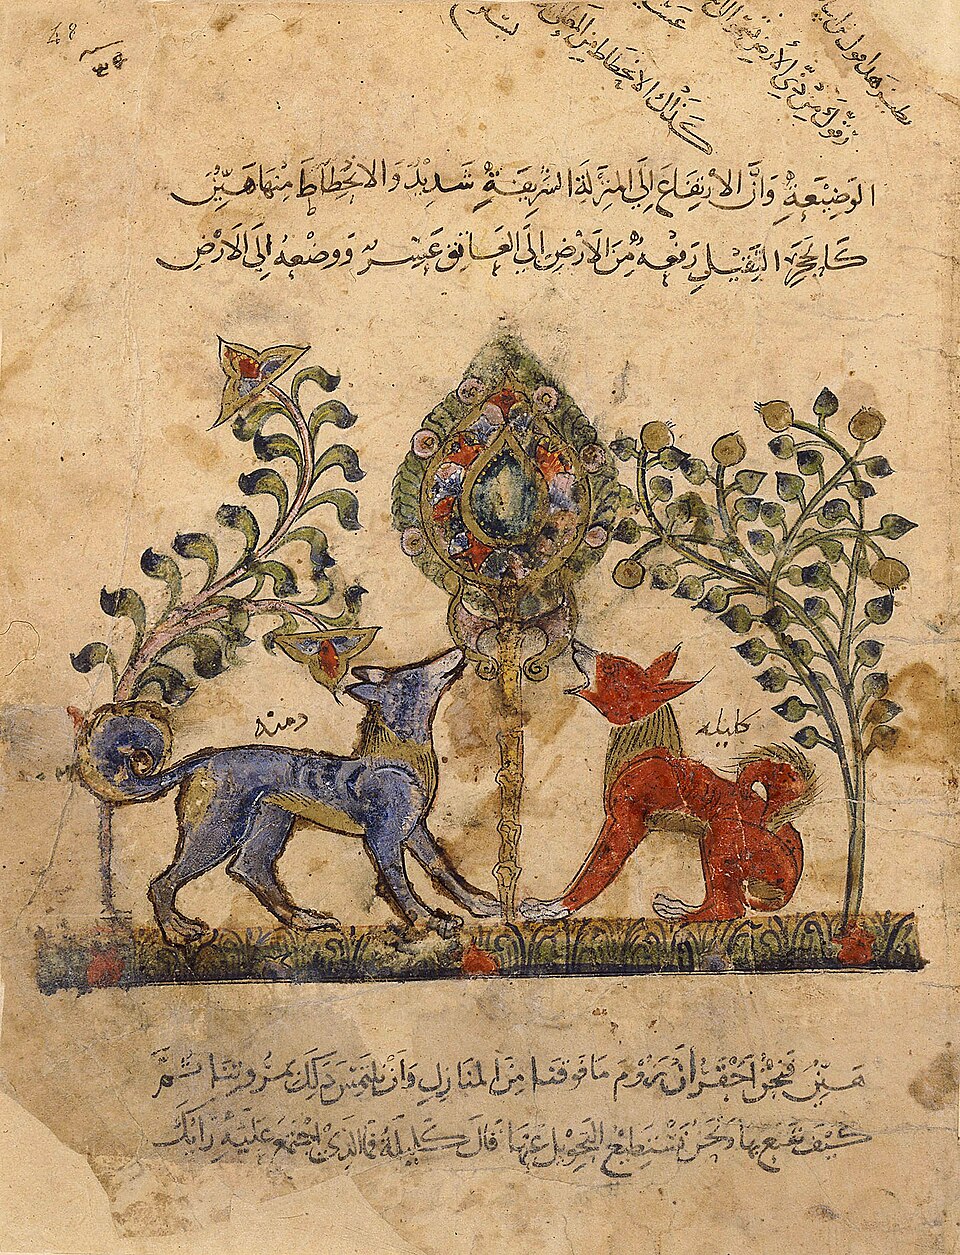 48
الوَضِيْعَةِ وَانَّ الاِرْتِفَاعَ اِلَي المنزلَةِ الشَّرِيفَةِ شَدِيْدٌ وَالانْحِطَاطَ مِنْهَا هَيِّنٌ
كَالحَجَرِ الثَّقيْلِ رَفْعهُ مِنَ الاَرْضِ اِلَي العَاتِقِ عَسِرٌ وَوضْعهُ اِلَي الاَرْضِ
دمنه
كليله
هَيِّنٌ فَنَحْنُ اَحَقُّ اَنْ نَرُوْمَ مَا فَوْقَنَا مِنَ المنَازِلِ وَاَنْ نَلْتَمِسَ ذَلِكَ بمرُوءتِنَا ثُمَّ
كَيْفَ نَقنَع بِهَا وَنَحْنُ نَسْتَطِيْعُ التَّحْوِيْل عَنْهَا قَالَ كَلِيْلَة فَمَا الَّذِي اجْتَمَعَ عَلَيْهِ رَأْيُكَ